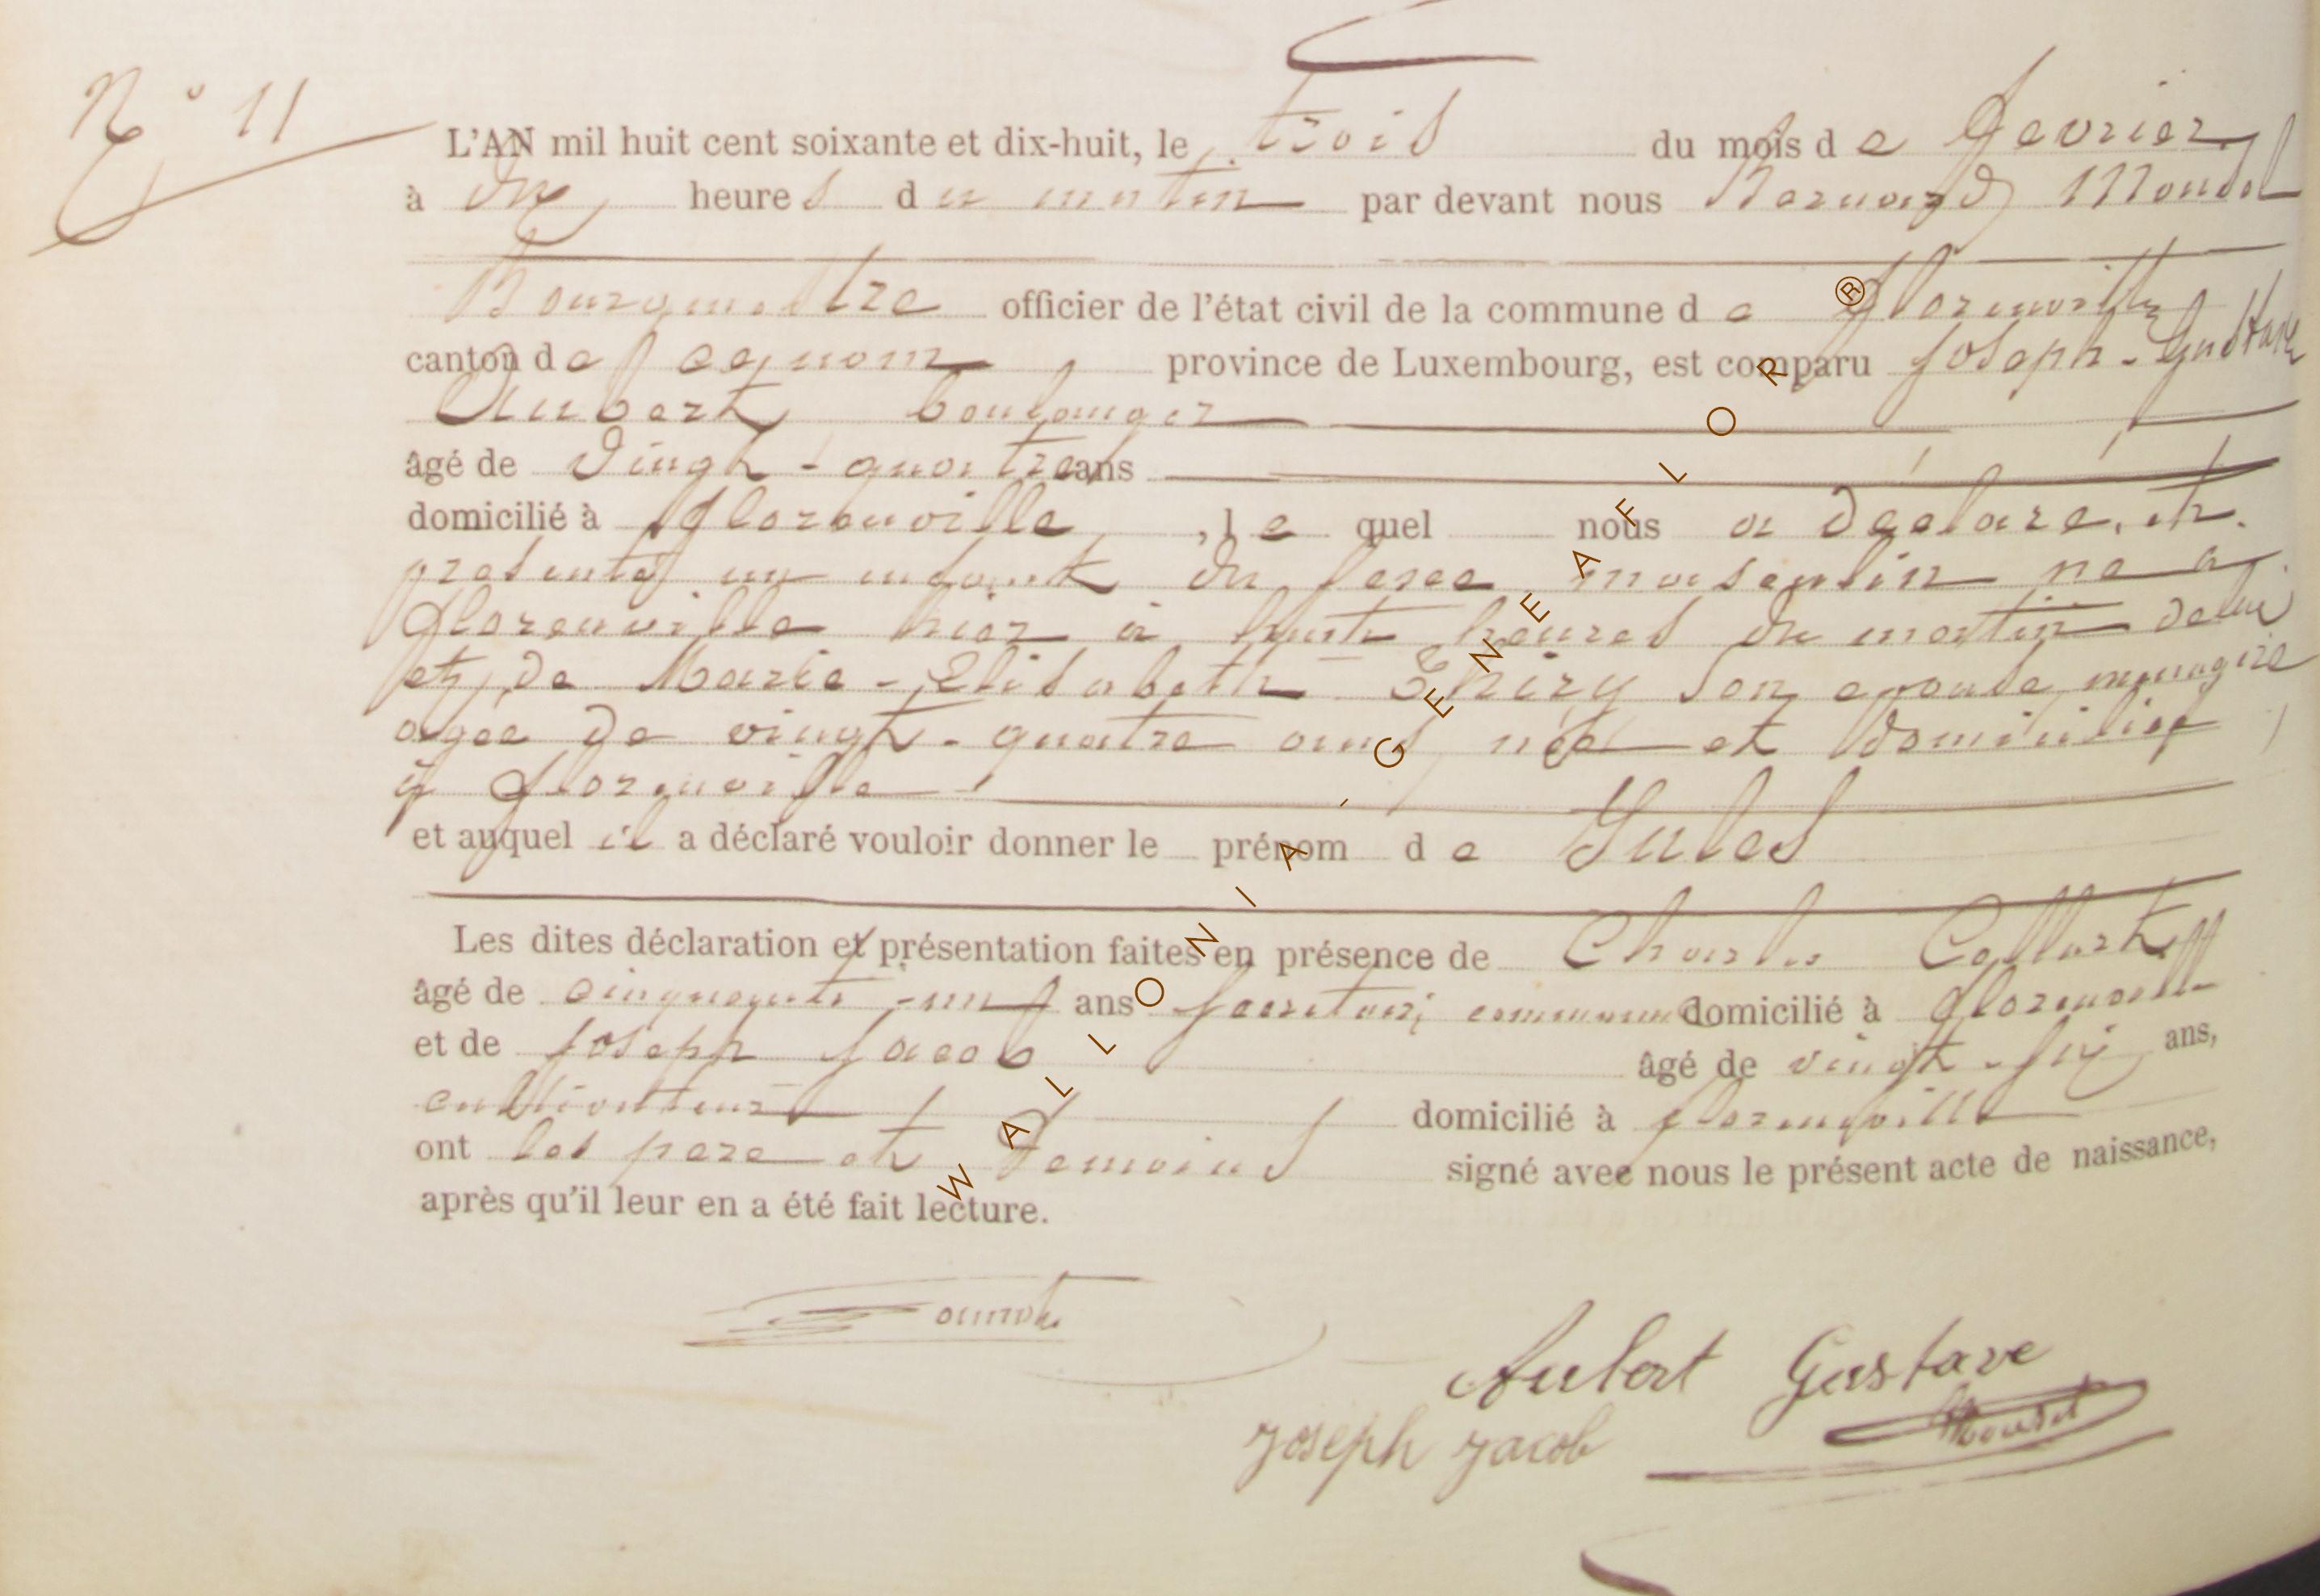 N° 11
L'AN mil huit cent soixante et dix-huit, le trois du mois de fevrier
à dix heures du matin par devant nous Bernard Moudel
Bourgmestre officier de l'état civil de la commune de florenville
canton de province de Luxembourg, est comparu Joseph-Gustave
Aubert boulanger
âgé de Vingt-quatre ans
domicilié à florenville, lequel nous a déclaré, et
presenté un enfant du sexe masculin né à
florenville hier à huit heures du matin de lui
et de Marie-Elisabeth Thiry son epouse, menagère
agée de vingt-quatre ans, née et domiciliée
à florenville
et auquel il a déclaré vouloir donner le prénom de Jules
Les dites déclaration et présentation faites en présence de Charles Collart
âgé de cinquante-un ans secretaire communal domicilié à florenville
et de Joseph Jacob âgé de vingt-six ans,
cultivateur domicilié à florenville
ont les pere et temoins signé avec nous le présent acte de naissance,
après qu'il leur en a été fait lecture.
Aubert Gustave
Joseph Jacob
WALLONIA - GENEAFLOR®